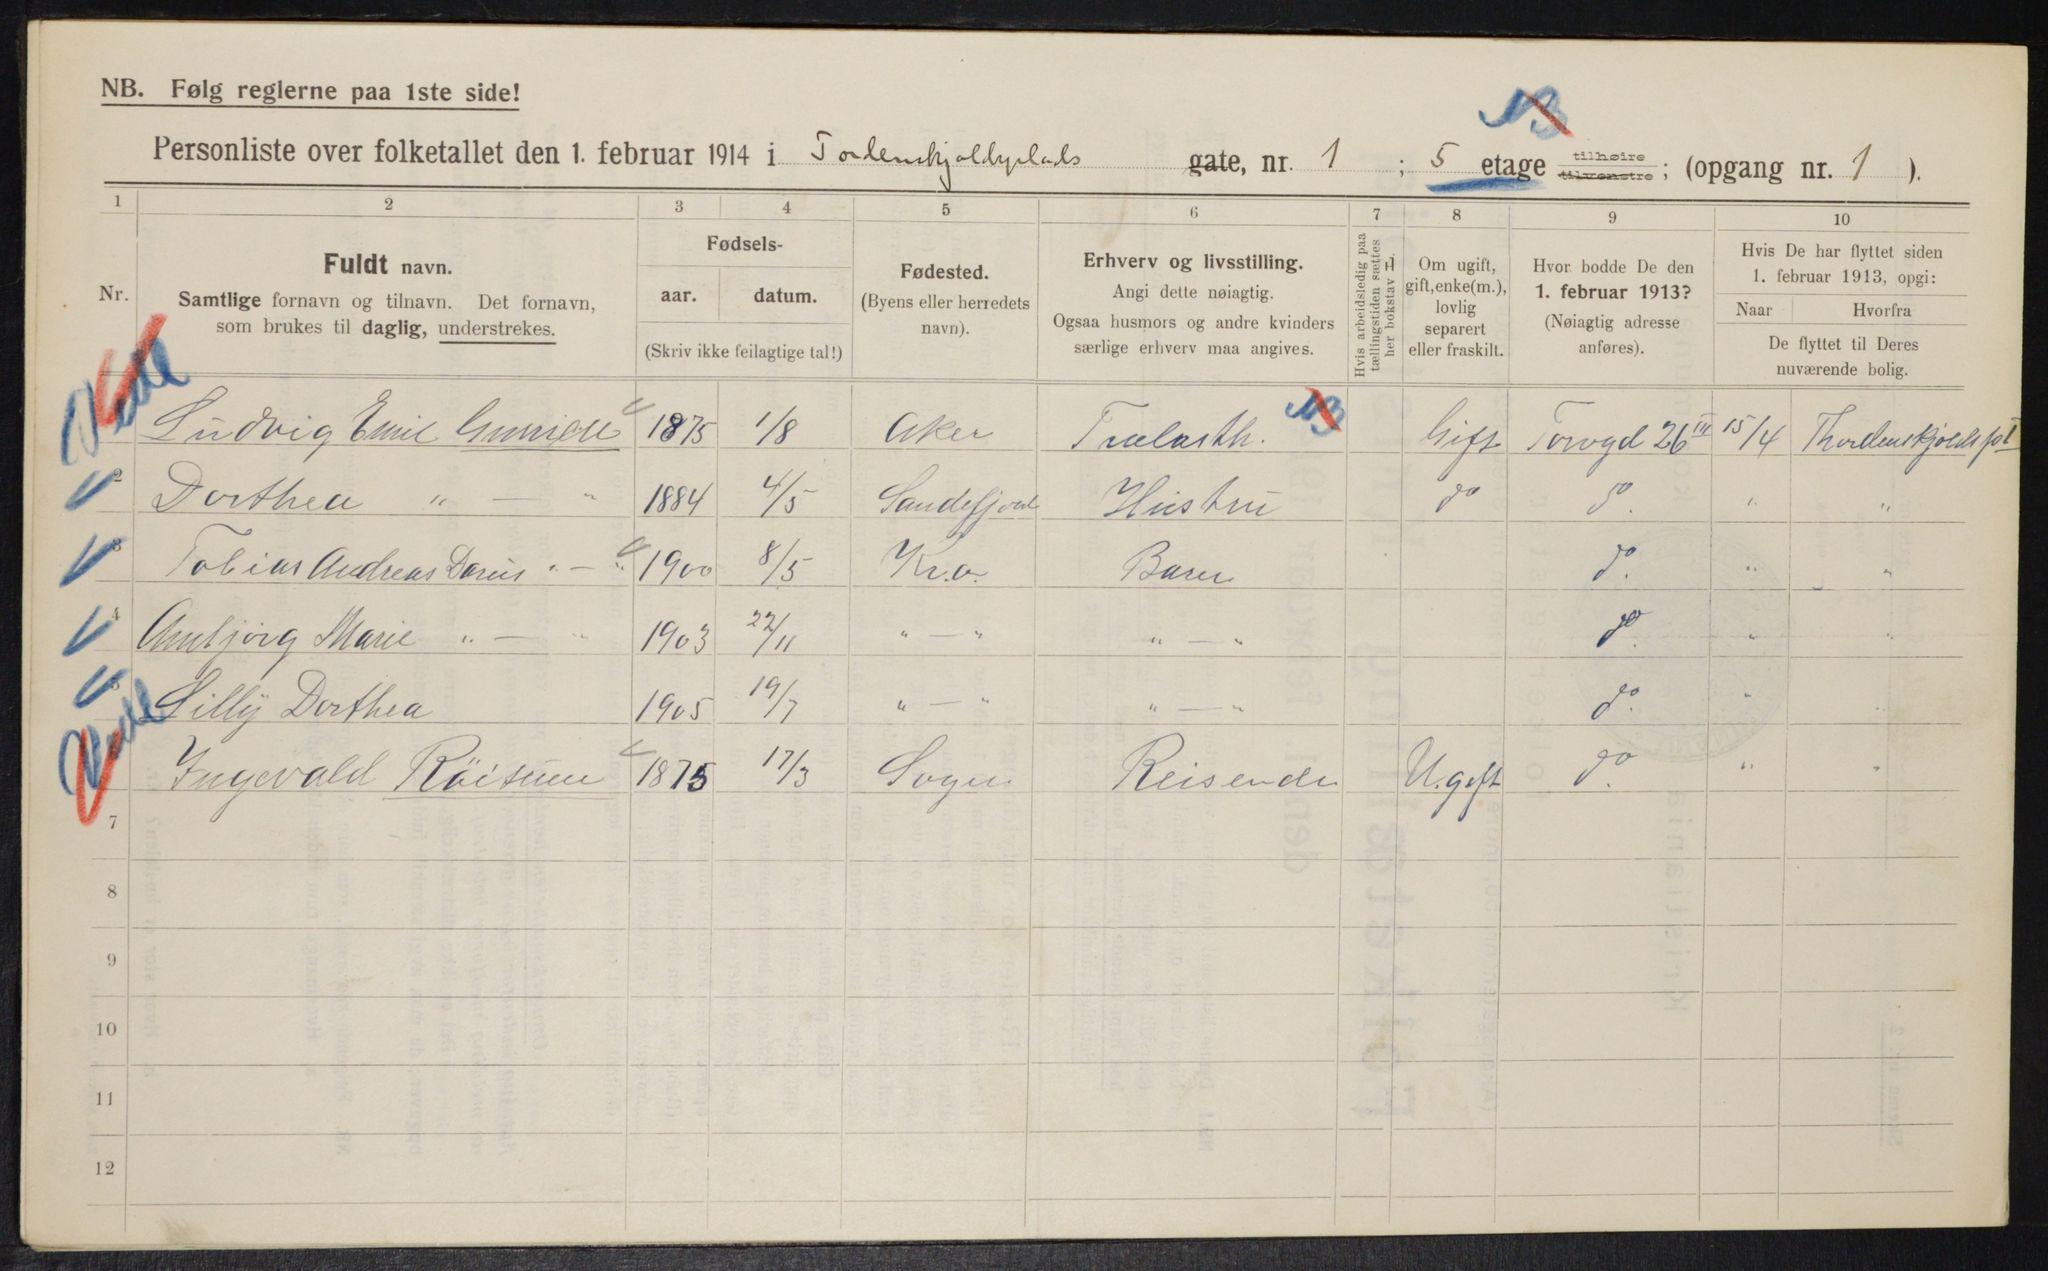 NB. Følg reglerne paa 1ste side!
NB
Personliste over folketallet den 1. februar 1914 i Tordenskjoldsplads gate, nr. 1 ; 5 etage tilhøire tilvenstre ; (opgang nr. 1 ).
1 2 3 4 5 6 7 8 9 10
Nr.
Fuldt navn.
Samtlige fornavn og tilnavn. Det fornavn,
som brukes til daglig, understrekes.
Fødsels-
aar. datum.
(Skriv ikke feilagtige tal!)
Fødested.
(Byens eller herredets
navn).
Erhverv og livsstilling.
Angi dette nøiagtig.
Ogsaa husmors og andre kvinders
særlige erhverv maa angives.
Hvis arbeidsledig paa
tællingstiden sættes
her bokstav L.
Om ugift,
gift, enke(m.),
lovlig
separert
eller fraskilt.
Hvor bodde De den
1. februar 1913?
(Nøiagtig adresse
anføres).
Hvis De har flyttet siden
1. februar 1913, opgi:
Naar Hvorfra
De flyttet til Deres
nuværende bolig.
Ludvig Emil 1875 1/8 Aker NB Gift Torvgd 26 III 15/4 Thordenskjolds pl I
2 Dorthea " — " 1884 4/5 Sandefjord Hustru do do. " "
3 Tobias Andreas " — " 1900 8/5 Kr.a. Barn do. " "
4 Marie " — " 1903 22/11 " — " " — " do. " "
5 Lilly Dorthea 1905 19/7 " — " " — " do. "
Ingevald 1875 17/3 Sogn Reisende Ugift do. " "
7
8
9
10
11
12